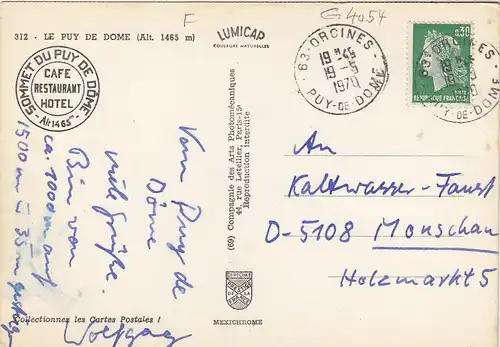 F
G 4054
312 - LE PUY DE DOME (Alt. 1465 m)
LUMICAP
COULEURS NATURELLES
SOMMET DU PUY DE DÔME
CAFE
RESTAURANT
HOTEL
Alt:1465m
63 ORCINES
19 H45
19-9
1970
PUY-DE-DOME
0,30
REPUBLIQUE FRANÇAISE
63 ORCINES
PUY-DE-DOME
Vom Puy de
Dôme
viele Grüße.
Bin von
ca. 1000 m auf
1500 m
Wolfgang
(69) Compagnie des Arts Photomécaniques
44, rue Letellier, Paris-15e
Reproduction interdite
An
Kaltwasser-Faust
D-5108 Monschau
Holzmarkt 5
DIPLOME
PRESTIGE
DE LA
FRANCE
MEXICHROME
Collectionnez les Cartes Postales !